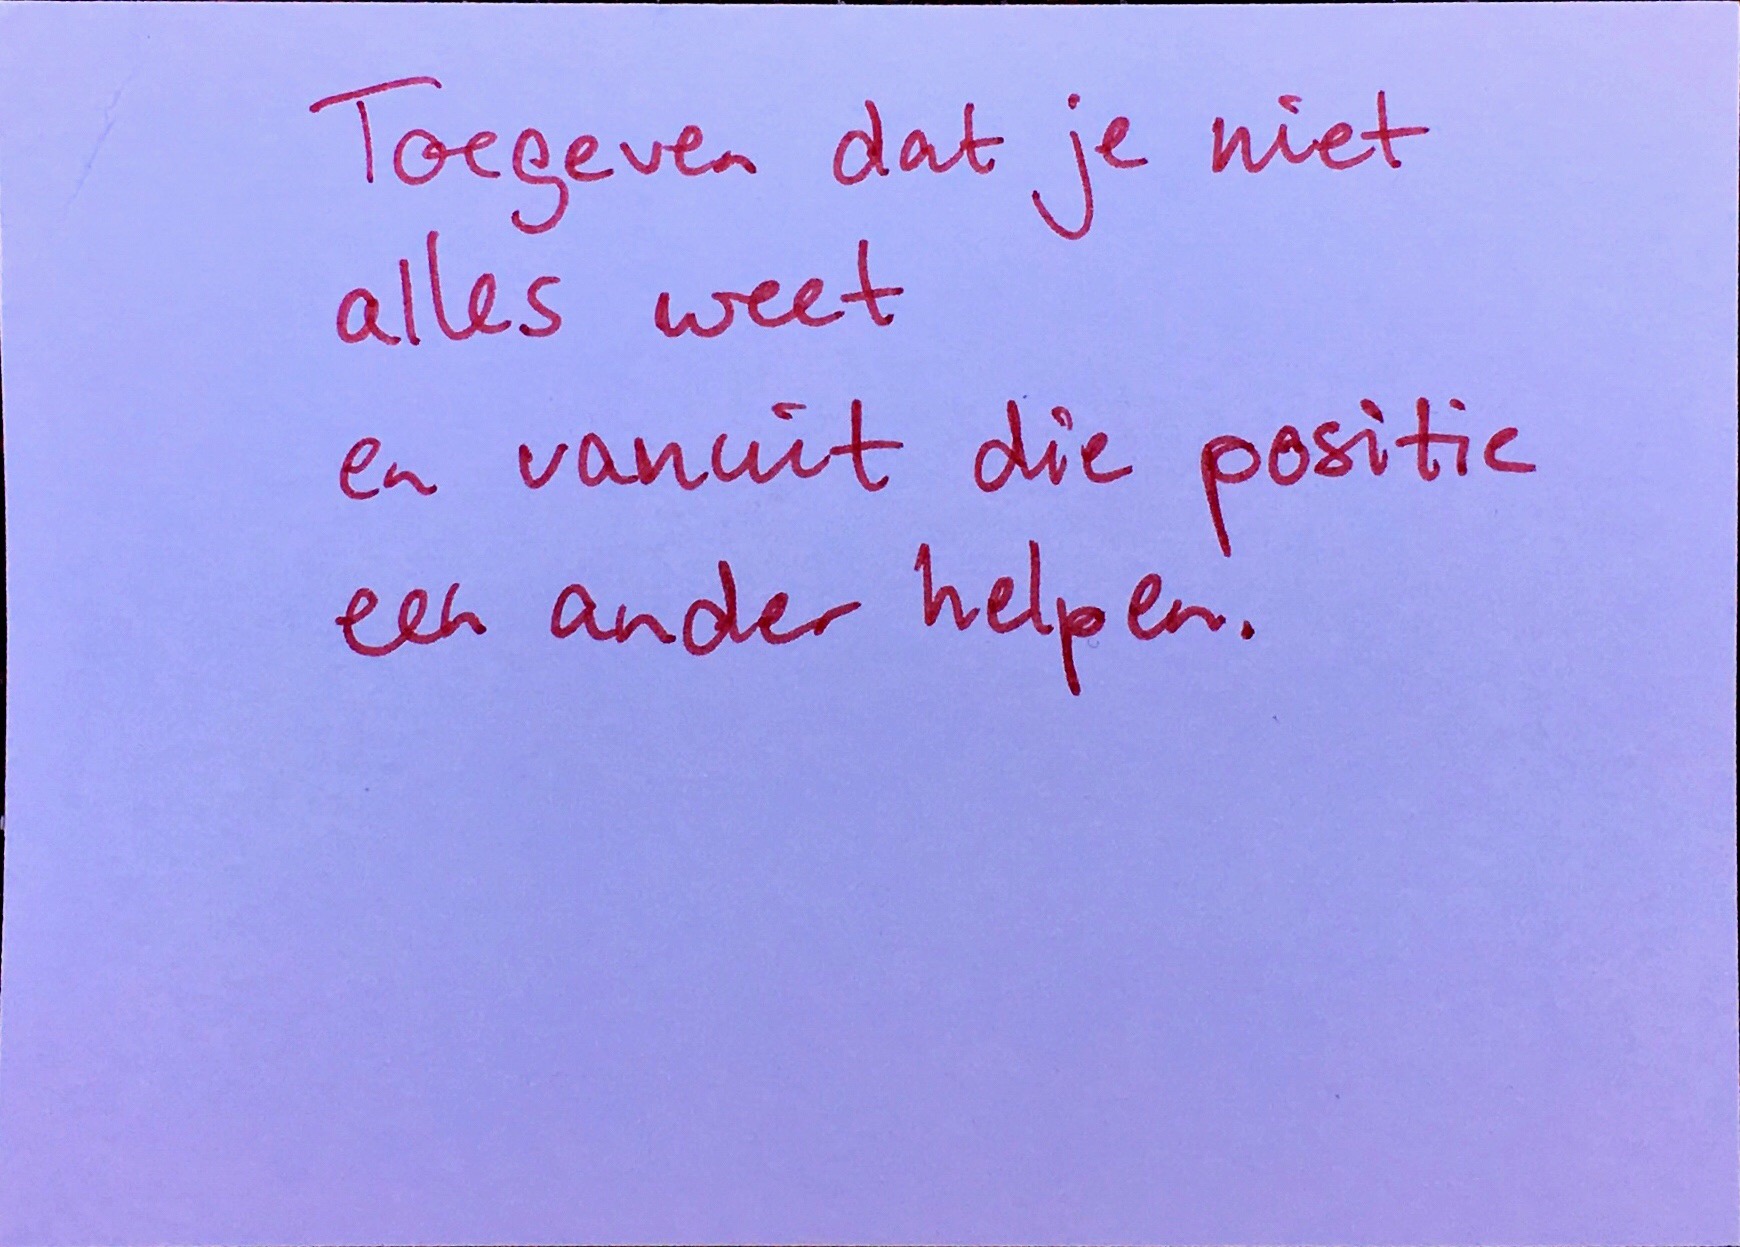 Toegeven dat je niet
alles weet
en vanuit die positie
een ander helpen.